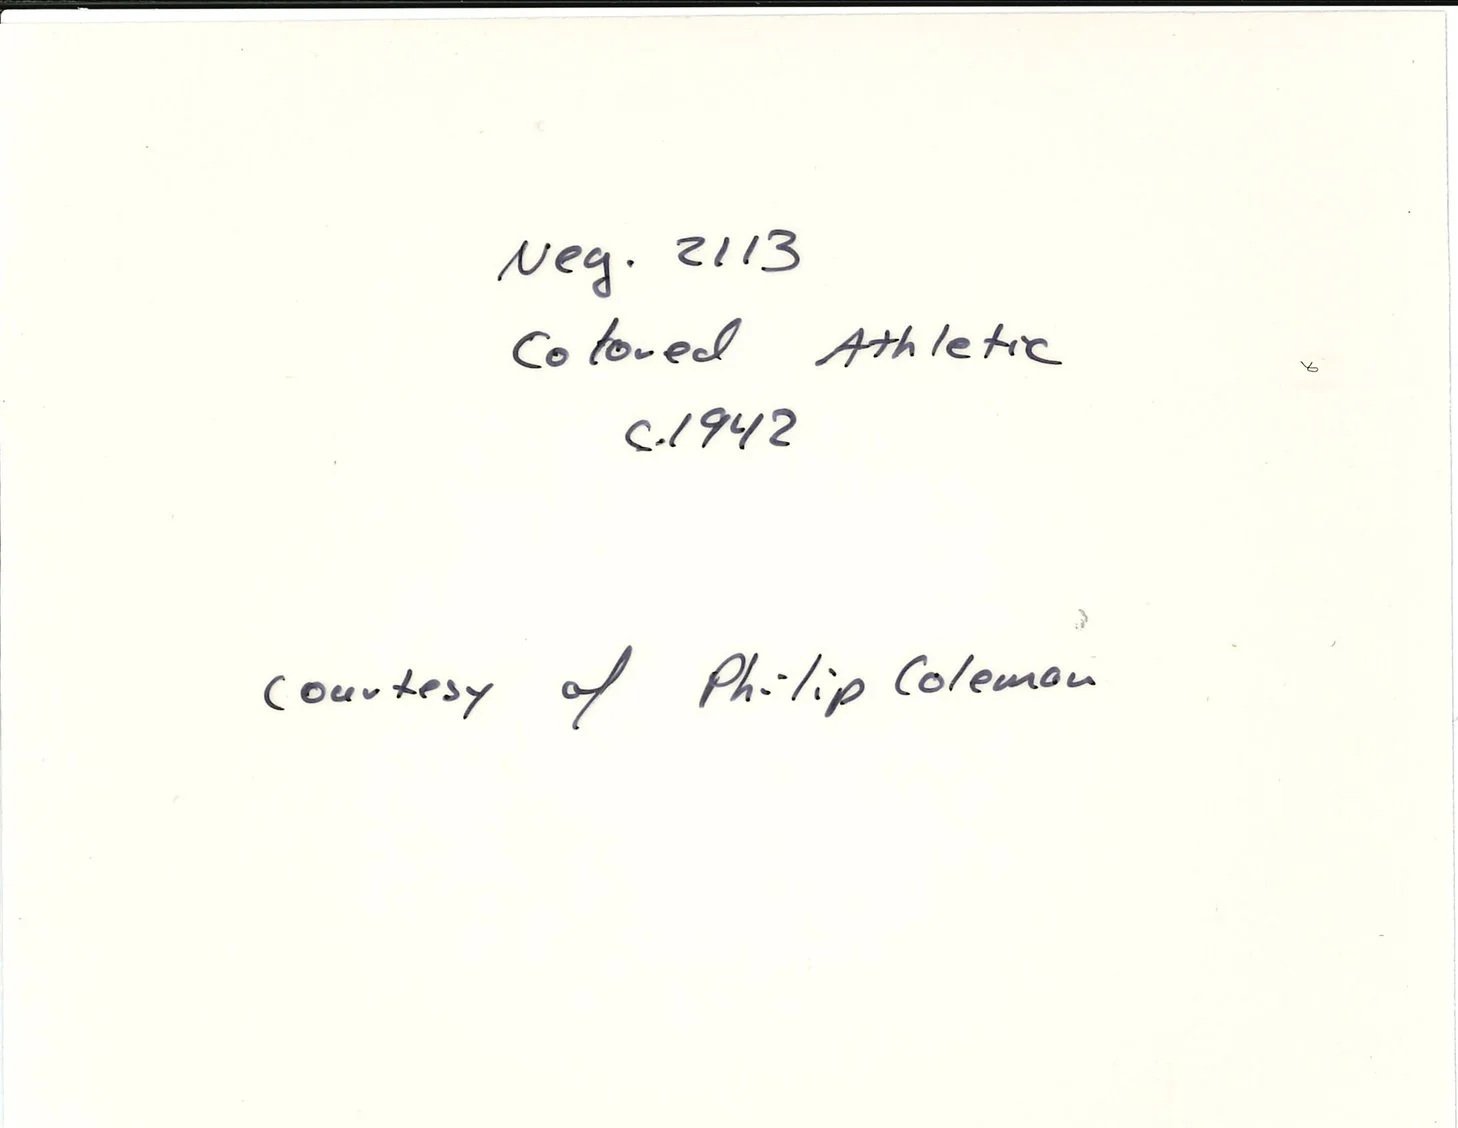 Neg. 2113
Colored Athletic
c.1942
Courtesy of Philip Coleman